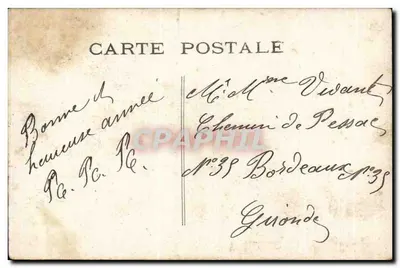 CARTE POSTALE
Bonne et
heureuse année
M. Mme Vivant
Chemin de Pessac
N° 35 Bordeaux N° 35
Gironde
CPAPHIL